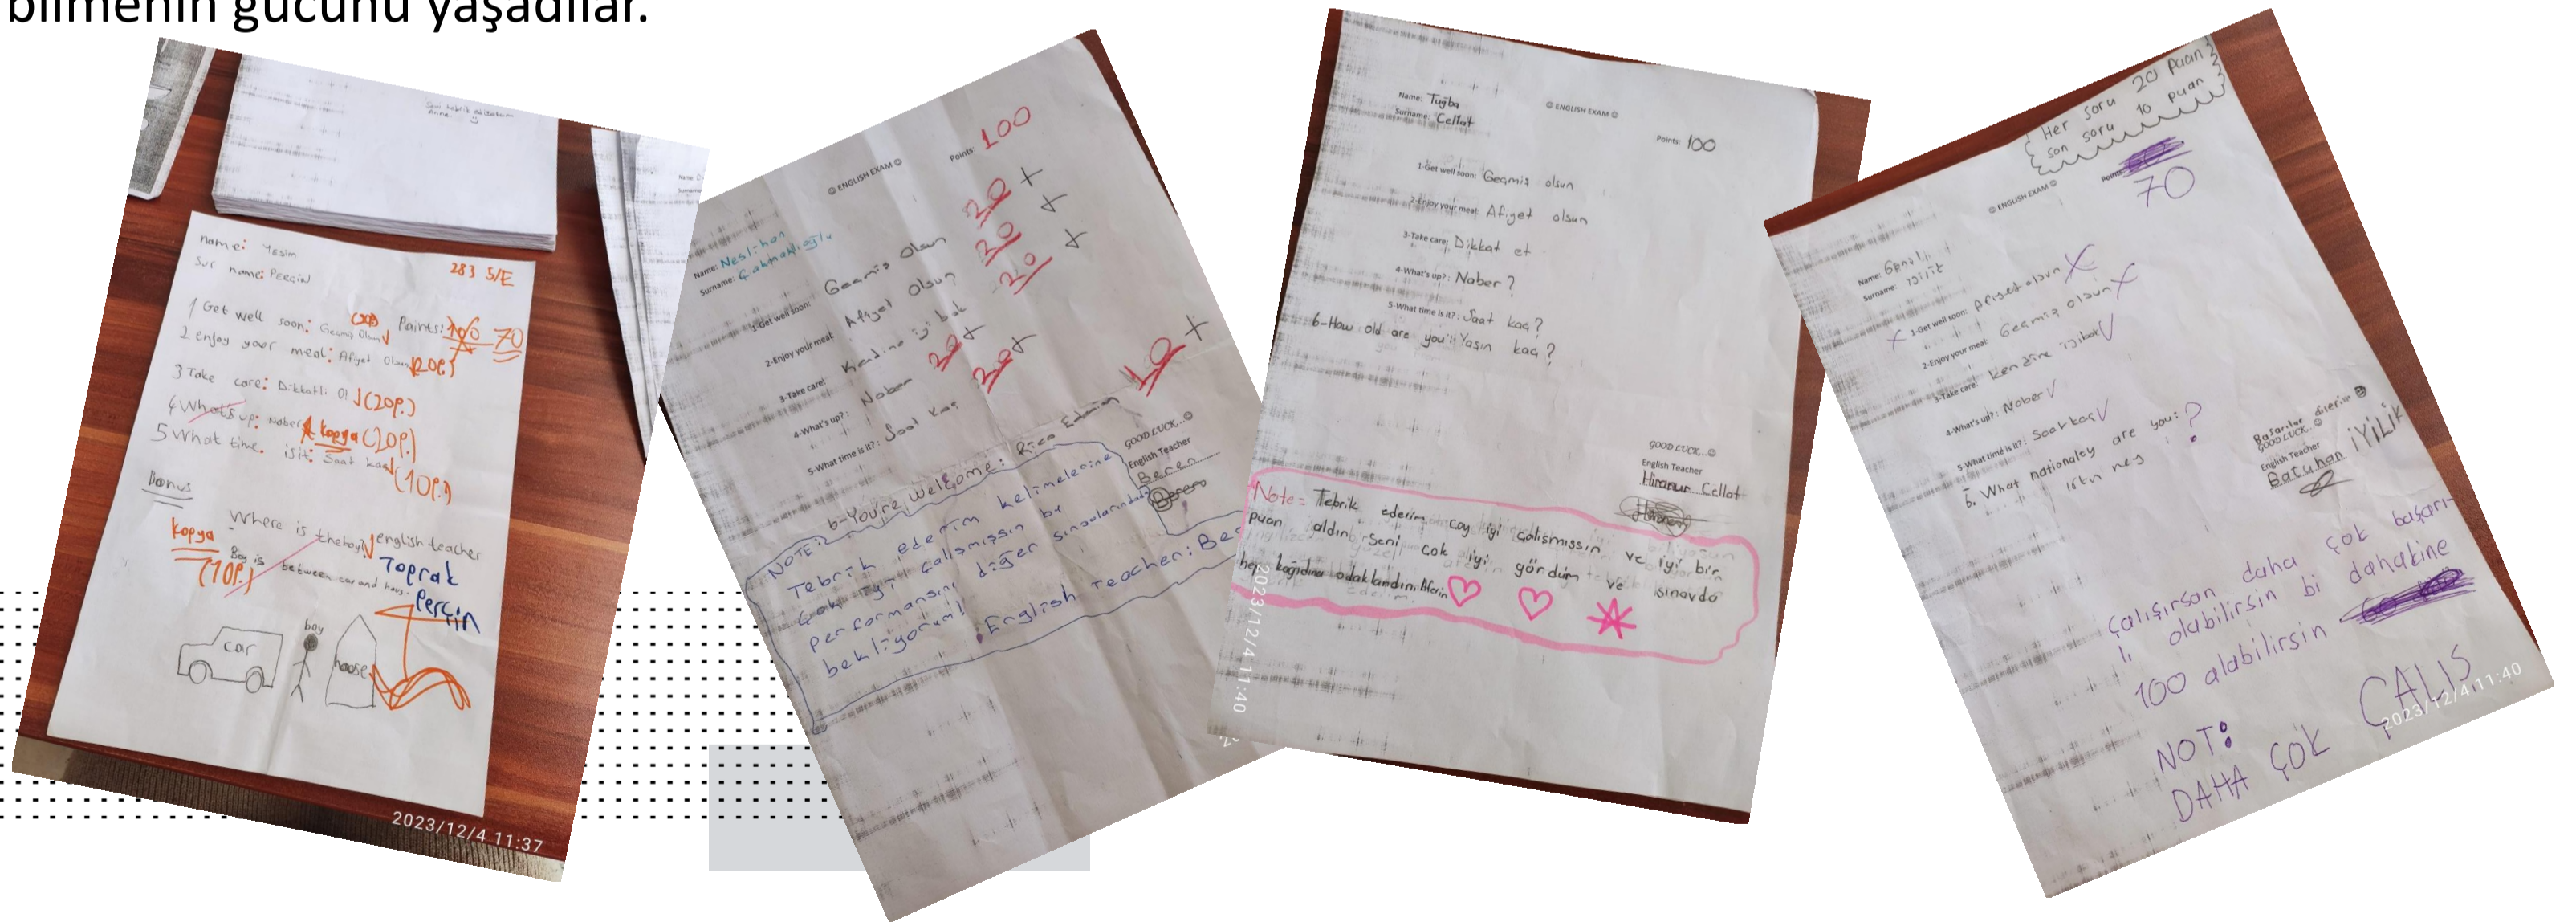 bilmenin gücünü yaşadılar.
name: Yesim
Sur name: PERÇİN
283 5/E
1 Get well soon: Geçmiş Olsun
Points: 100 70
2 enjoy your meal: Afiyet Olsun (20P.)
3 Take care: Dikkatli Ol (20P.)
4 What's up: Naber kopya (20P.)
5 What time. is it: Saat kaç (10P.)
Bonus
kopya
(10P.)
Where is the boy?
english teacher
Toprak
Perçin
Boy is between car and hous.
car
boy
house
2023/12/4 11:37
☺ ENGLISH EXAM ☺
Points: 100
Name: Neslihan
Surname: Çakmakçıoğlu
1-Get well soon: Geçmiş Olsun 20 +
2-Enjoy your meal: Afiyet Olsun 20 +
3-Take care! Kendine iyi bak 20 +
4-What's up?: Naber 20 +
5-What time is it?: Saat Kaç 20 +
6-You're welcome: Rica Ederim 10 +
GOOD LUCK...☺
English Teacher
Beren
Beren
NOTE:
Tebrik ederim kelimelerine
çok iyi çalışmışsın bu
performansını diğer sınavlarında
bekliyorum!
English teacher: Be
☺ ENGLISH EXAM ☺
Name: Tuğba
Surname: Cellat
Points: 100
1-Get well soon: Geçmiş olsun
2-Enjoy your meal: Afiyet olsun
3-Take care: Dikkat et
4-What's up?: Naber?
5-What time is it?: Saat kaç?
6-How old are you: Yaşın kaç?
GOOD LUCK...☺
English Teacher
Hiranur Cellat
Note= Tebrik ederim çoy iyi çalışmışsın ve iyi bir
puan aldın seni çok iyi gördüm ve sınavda
hep kağıdına odaklandın. Aferin
2023/12/4 11:40
Her soru 20 puan
son soru 10 puan
☺ ENGLISH EXAM ☺
Points:
70
Name:
Surname:
1-Get well soon: Afiyet olsun
2-Enjoy your meal: Geçmiş olsun
3-Take care: kendine iyi bak
4-What's up?: Naber
5-What time is it?: Saat kaç
6. What nationalty are you: ?
Irkın ney
Başarılar dilerim
GOOD LUCK...☺
English Teacher
Batuhan İYİLİK
çalışırsan daha çok başarı-
lı olabilirsin bi dahakine
100 alabilirsin
NOT:
DAHA ÇOK ÇALIŞ
2023/12/4 11:40